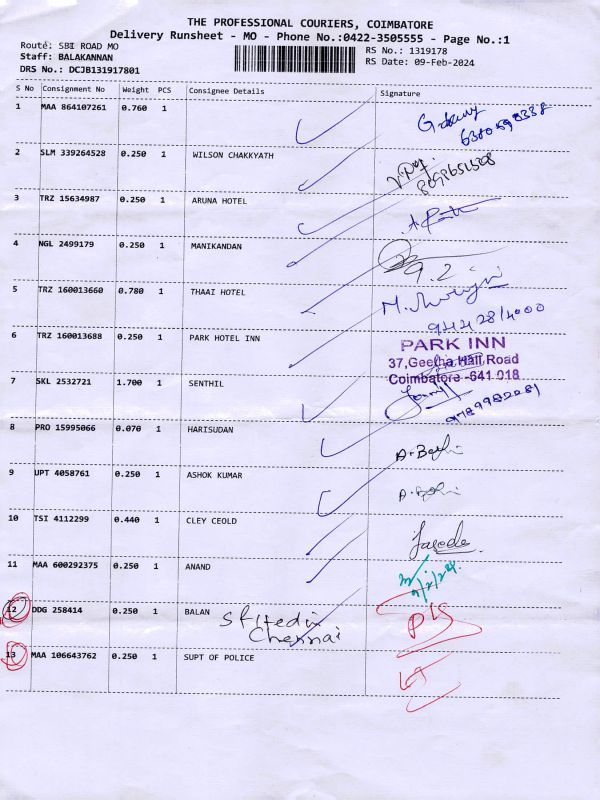 THE PROFESSIONAL COURIERS, COIMBATORE
Delivery Runsheet - MO - Phone No.:0422-3505555 - Page No.:1
Route: SBI ROAD MO
Staff: BALAKANNAN
DRS No.: DCJB131917801
RS No.: 1319178
RS Date: 09-Feb-2024
S No Consignment No Weight PCS Consignee Details Signature
1 MAA 864107261 0.760 1
2 SLM 339264528 0.250 1 WILSON CHAKKYATH
3 TRZ 15634987 0.250 1 ARUNA HOTEL
4 NGL 2499179 0.250 1 MANIKANDAN
9.2
5 TRZ 160013660 0.780 1 THAAI HOTEL
6 TRZ 160013688 0.250 1 PARK HOTEL INN
PARK INN
37,Geetha Hall Road
Coimbatore -641 018
7 SKL 2532721 1.700 1 SENTHIL
8 PRO 15995066 0.070 1 HARISUDAN
9 UPT 4058761 0.250 1 ASHOK KUMAR
10 TSI 4112299 0.440 1 CLEY CEOLD
11 MAA 600292375 0.250 1 ANAND
12 DDG 258414 0.250 1 BALAN
Chennai
13 MAA 106643762 0.250 1 SUPT OF POLICE